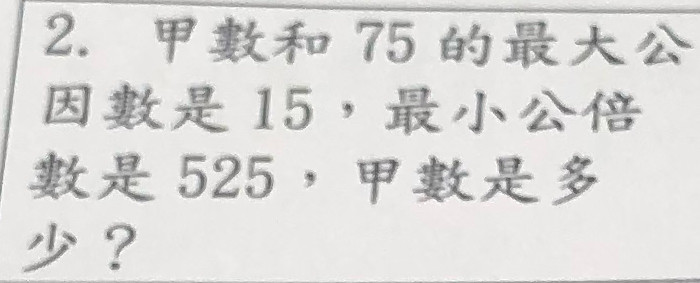 2. 甲數和 75 的最大公
因數是 15，最小公倍
數是 525，甲數是多
少？